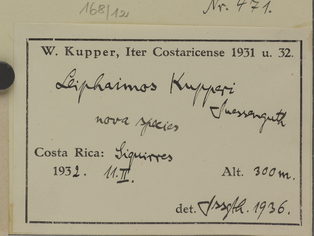 168/12
Nr. 471.
W. Kupper, Iter Costaricense 1931 u. 32.
Leiphaimos Kupperi
Suessenguth
nova species
Costa Rica: Siquirres
1932. 11.II. Alt. 300m.
det. Sssgth. 1936.